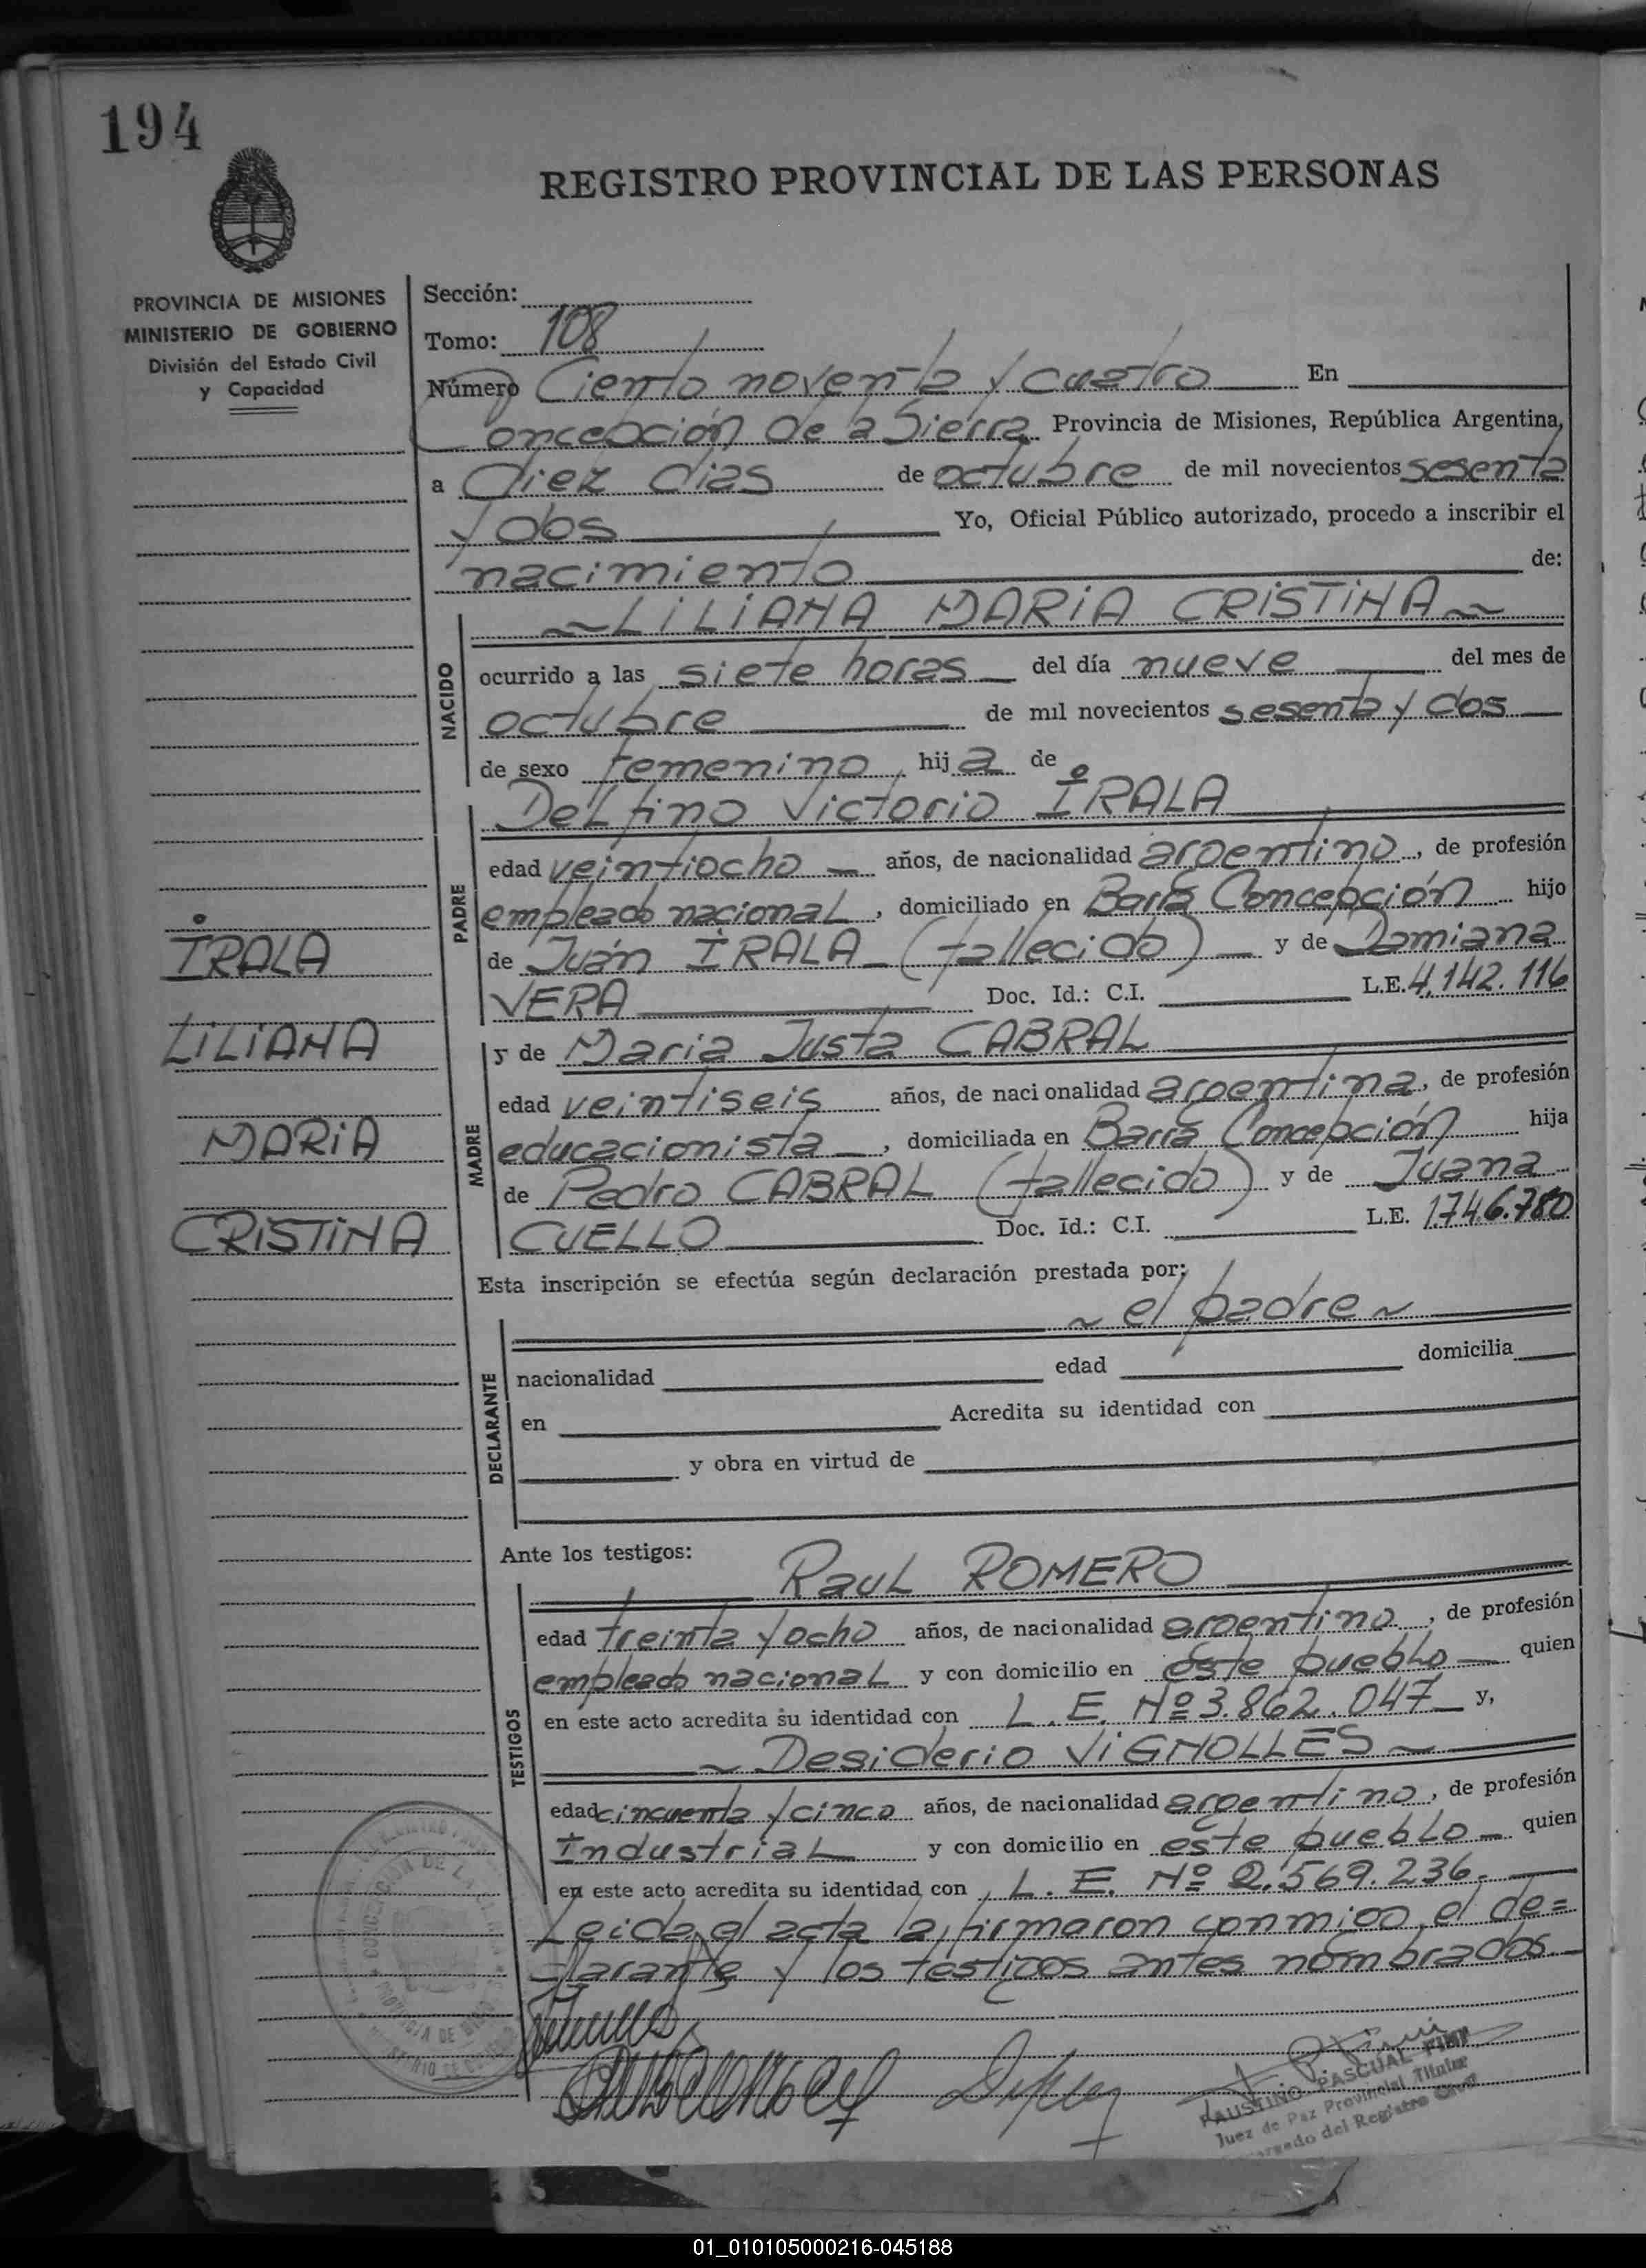 194
REGISTRO PROVINCIAL DE LAS PERSONAS
PROVINCIA DE MISIONES
MINISTERIO DE GOBIERNO
División del Estado Civil
y Capacidad
Sección:
Tomo: 108
Número Ciento noventa y cuatro En
Concepción de la Sierra Provincia de Misiones, República Argentina,
a diez dias de octubre de mil novecientos sesenta
y dos Yo, Oficial Público autorizado, procedo a inscribir el
nacimiento de:
LILIANA MARIA CRISTINA
NACIDO
ocurrido a las siete horas del día nueve del mes de
octubre de mil novecientos sesenta y dos
de sexo femenino, hija de
Delfino Victorio IRALA
PADRE
edad veintiocho años, de nacionalidad argentino, de profesión
empleado nacional, domiciliado en Barra Concepción hijo
de Juán IRALA (fallecido) y de Damiana
VERA Doc. Id.: C.I. L.E. 4.142.116
IRALA
LILIANA
MARIA
CRISTINA
MADRE
y de Maria Justa CABRAL
edad veintiseis años, de nacionalidad argentina, de profesión
educacionista, domiciliada en Barra Concepción hija
de Pedro CABRAL (fallecido) y de Juana
CUELLO Doc. Id.: C.I. L.E. 1.746.780
Esta inscripción se efectúa según declaración prestada por:
el padre
DECLARANTE
nacionalidad edad domicilia
en Acredita su identidad con
y obra en virtud de
Ante los testigos:
Raul ROMERO
TESTIGOS
edad treinta y ocho años, de nacionalidad argentino, de profesión
empleado nacional y con domicilio en este pueblo quien
en este acto acredita su identidad con L.E. Nº 3.862.047 y,
Desiderio VIGNOLLES
edad cincuenta y cinco años, de nacionalidad argentino, de profesión
Industrial y con domicilio en este pueblo quien
en este acto acredita su identidad con L.E. Nº 2.569.236.
Leida el acta la firmaron conmigo el de=
clarante y los testigos antes nombrados
FAUSTINO PASCUAL
Juez de Paz Provincial Titular
del Registro Civil
01_010105000216-045188